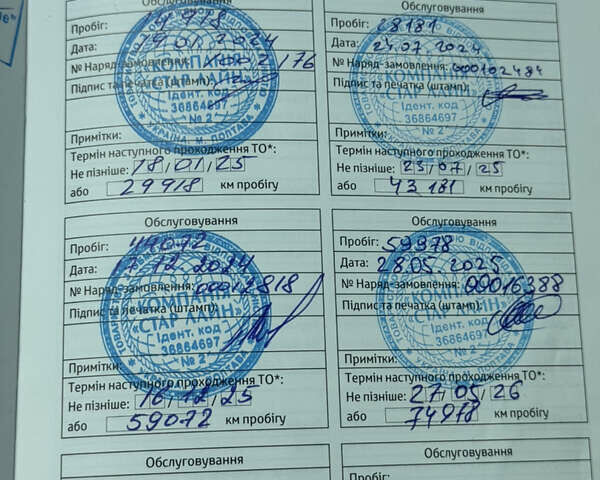 Обслуговування
Пробіг: 14918
Дата: 19.01.2024
№ Наряд-замовлення: 2176
Підпис та печатка (штамп):
Примітки:
Термін наступного проходження ТО*:
Не пізніше: 18/01/25
або 29918 км пробігу
Обслуговування
Пробіг: 28181
Дата: 24.07.2024
№ Наряд-замовлення: 000102484
Підпис та печатка (штамп):
КОМПАНІЯ
СТАР ЛАЙН
Ідент. код
36864697
№ 2
Примітки:
Термін наступного проходження ТО*:
Не пізніше: 23/07/25
або 43181 км пробігу
Обслуговування
Пробіг: 44072
Дата: 17.12.2024
№ Наряд-замовлення: 00012818
Підпис та печатка (штамп):
КОМПАНІЯ
«СТАР ЛАЙН»
Ідент. код
36864697
№ 2
Примітки:
Термін наступного проходження ТО*:
Не пізніше: 16/12/25
або 59072 км пробігу
Обслуговування
Пробіг: 59978
Дата: 28.05.2025
№ Наряд-замовлення: 00016388
Підпис та печатка (штамп):
КОМПАНІЯ
«СТАР ЛАЙН»
Ідент. код
36864697
№ 2
Примітки:
Термін наступного проходження ТО*:
Не пізніше: 27/05/26
або 74978 км пробігу
Обслуговування
Обслуговування
Пробіг: